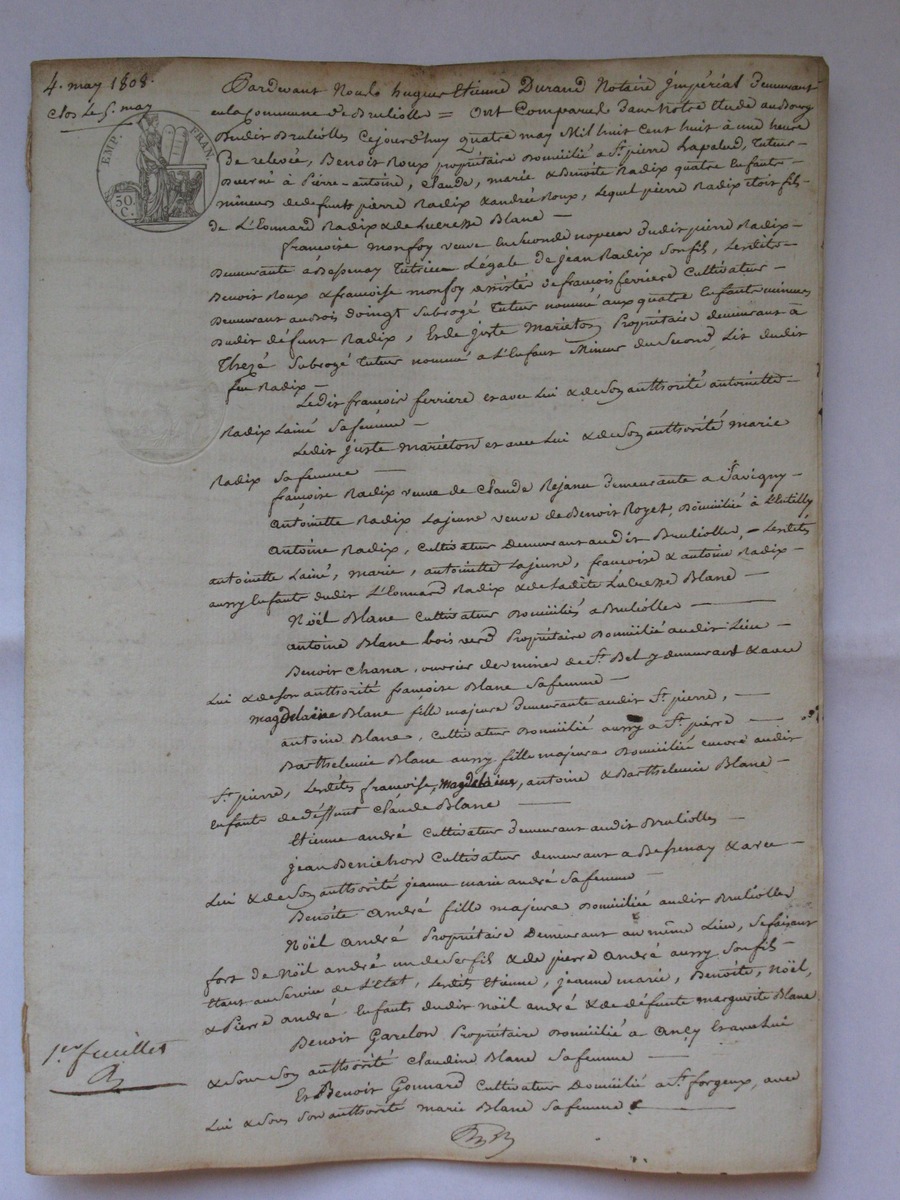 4. may 1808.
clos le 5. may
EMP. FRAN.
50. C.
Pardevant Nous hugues Etienne Durand Notaire Jmpérial demeurant
en la Commune de Brulliolle = Ont Comparus dans notre Etude au Bourg
dudit Brulliolles Cejourd'huy quatre may Mil huit Cent huit à une heure
De relevée, Benoit Roux propriétaire Domicilié a St. pierre Lapalud, Tuteur
décerné à Pierre-antoine, Claude, marie & Benoite Radix quatre Enfants
mineurs de defunts pierre Radix & andrée Roux, Lequel pierre Radix étoit fils
de L'Eonnard Radix & de Lucresse Blanc —
françoise monfoy veuve En Seconde nopces dudit pierre Radix
Demeurante à Bessenay Tutrice Légale de jean Radix Son fils, Lesdits
Benoit Roux & françoise monfoy assistés de françois ferriere Cultivateur
Demeurant au bois doingt Subrogé Tuteur nommé aux quatre Enfants mineurs
dudit défunt Radix, Et de juste Mariéton Propriétaire demeurant à
Thezé Subrogé Tuteur nommé a L'Enfant Mineur du Second Lit dudit
feu Radix —
Ledit françois ferriere et avec Lui & de Son authorité antoinette
Radix Lainé Safemme —
Ledit juste mariéton et avec Lui & de Son authorité marie
Radix Safemme —
françoise Radix veuve de Claude Rejanu demeurante a Savigny
Antoinette Radix Lajeune veuve de Benoit Royet, Domicilié à Lentilly
Antoine Radix, Cultivateur Demeurant audit Brulliolles, — Lesdits
antoinette Lainé, Marie, antoinette Lajeune, françoise & antoine Radix
aussy Enfants dudit L'Eonnard Radix & de Ladite Lucresse Blanc —
Noël Blanc Cultivateur Domiciliés a Brulliolles —
antoine Blanc bois verd Propriétaire Domicilié audit Lieu —
Benoit Chana, ouvrier des mines de St. Bel y demeurant & avec
Lui & de son authorité françoise Blanc Safemme —
magdelaine Blanc fille majeure Demeurante audit St. pierre, —
antoine Blanc, Cultivateur Domicilié aussy a St. pierre —
Barthelemie Blanc aussy fille majeure Domiciliée encore audit
St. pierre, Lesdits françoise, magdelaine, antoine & Barthelemie Blanc
enfants de déffunt Claude Blanc —
Etienne andré Cultivateur demeurant audit Brulliolles —
jean Benichon Cultivateur demeurant a Bessenay & avec
Lui & de Son authorité jeanne marie andré Safemme —
Benoîte André fille majeure Domiciliée audit Brulliolles
Noël André Propriétaire Demeurant au même Lieu, Sefaisant
fort de Noël andré un de ses fils & de pierre André aussy Son fils
étant au Service de L'Etat, Lesdits Etienne, jeanne marie, Benoîte, Noël,
& Pierre andré Enfants dudit Noël andré & de défunte marguerite Blanc
Benoit Garelon Propriétaire Domicilié a Ancy Et avec Lui
& Sous Son authorité Claudine Blanc Safemme —
Et Benoit Gonnard Cultivateur Domicilié a St. forgeux, avec
Lui & Sous Son authorité marie Blanc Safemme —
1.er feuillet